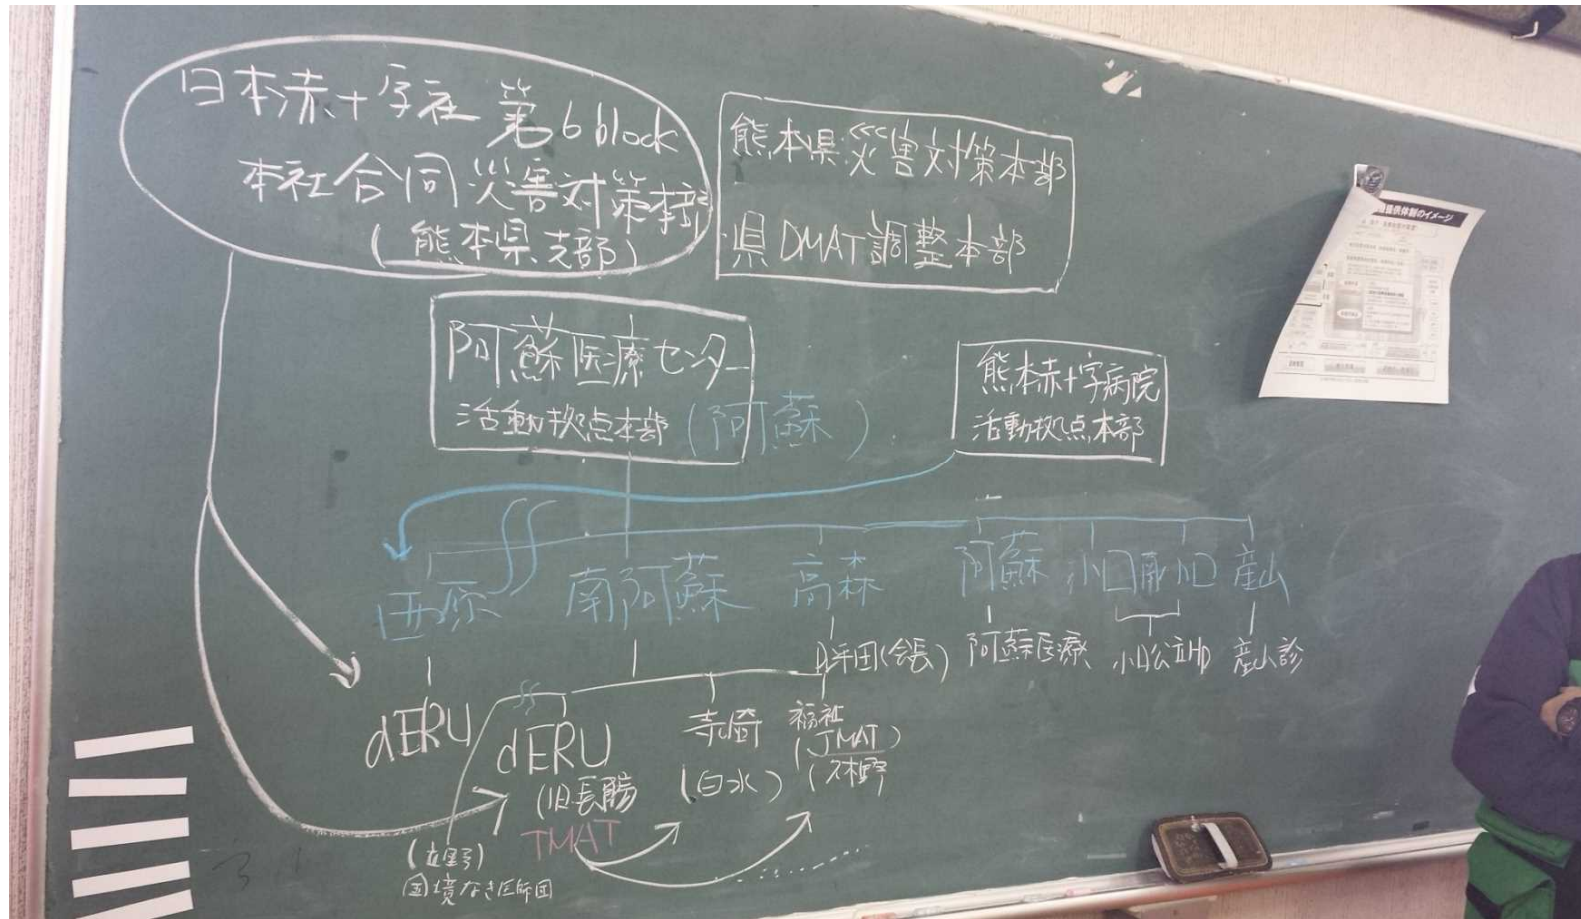 日本赤十字社 第6block
本社合同災害対策本部
(熊本県支部)
熊本県災害対策本部
県DMAT調整本部
阿蘇医療センター
活動拠点本部
(阿蘇)
熊本赤十字病院
活動拠点本部
西原 南阿蘇 高森 阿蘇 小国 南小国 産山
平田(会長) 阿蘇医療 小国公立HP 産山診
dERU
dERU
(旧長陽
TMAT
寺崎
(白水)
福祉
(JMAT)
(久木野
(立野)
国境なき医師団
提供体制のイメージ